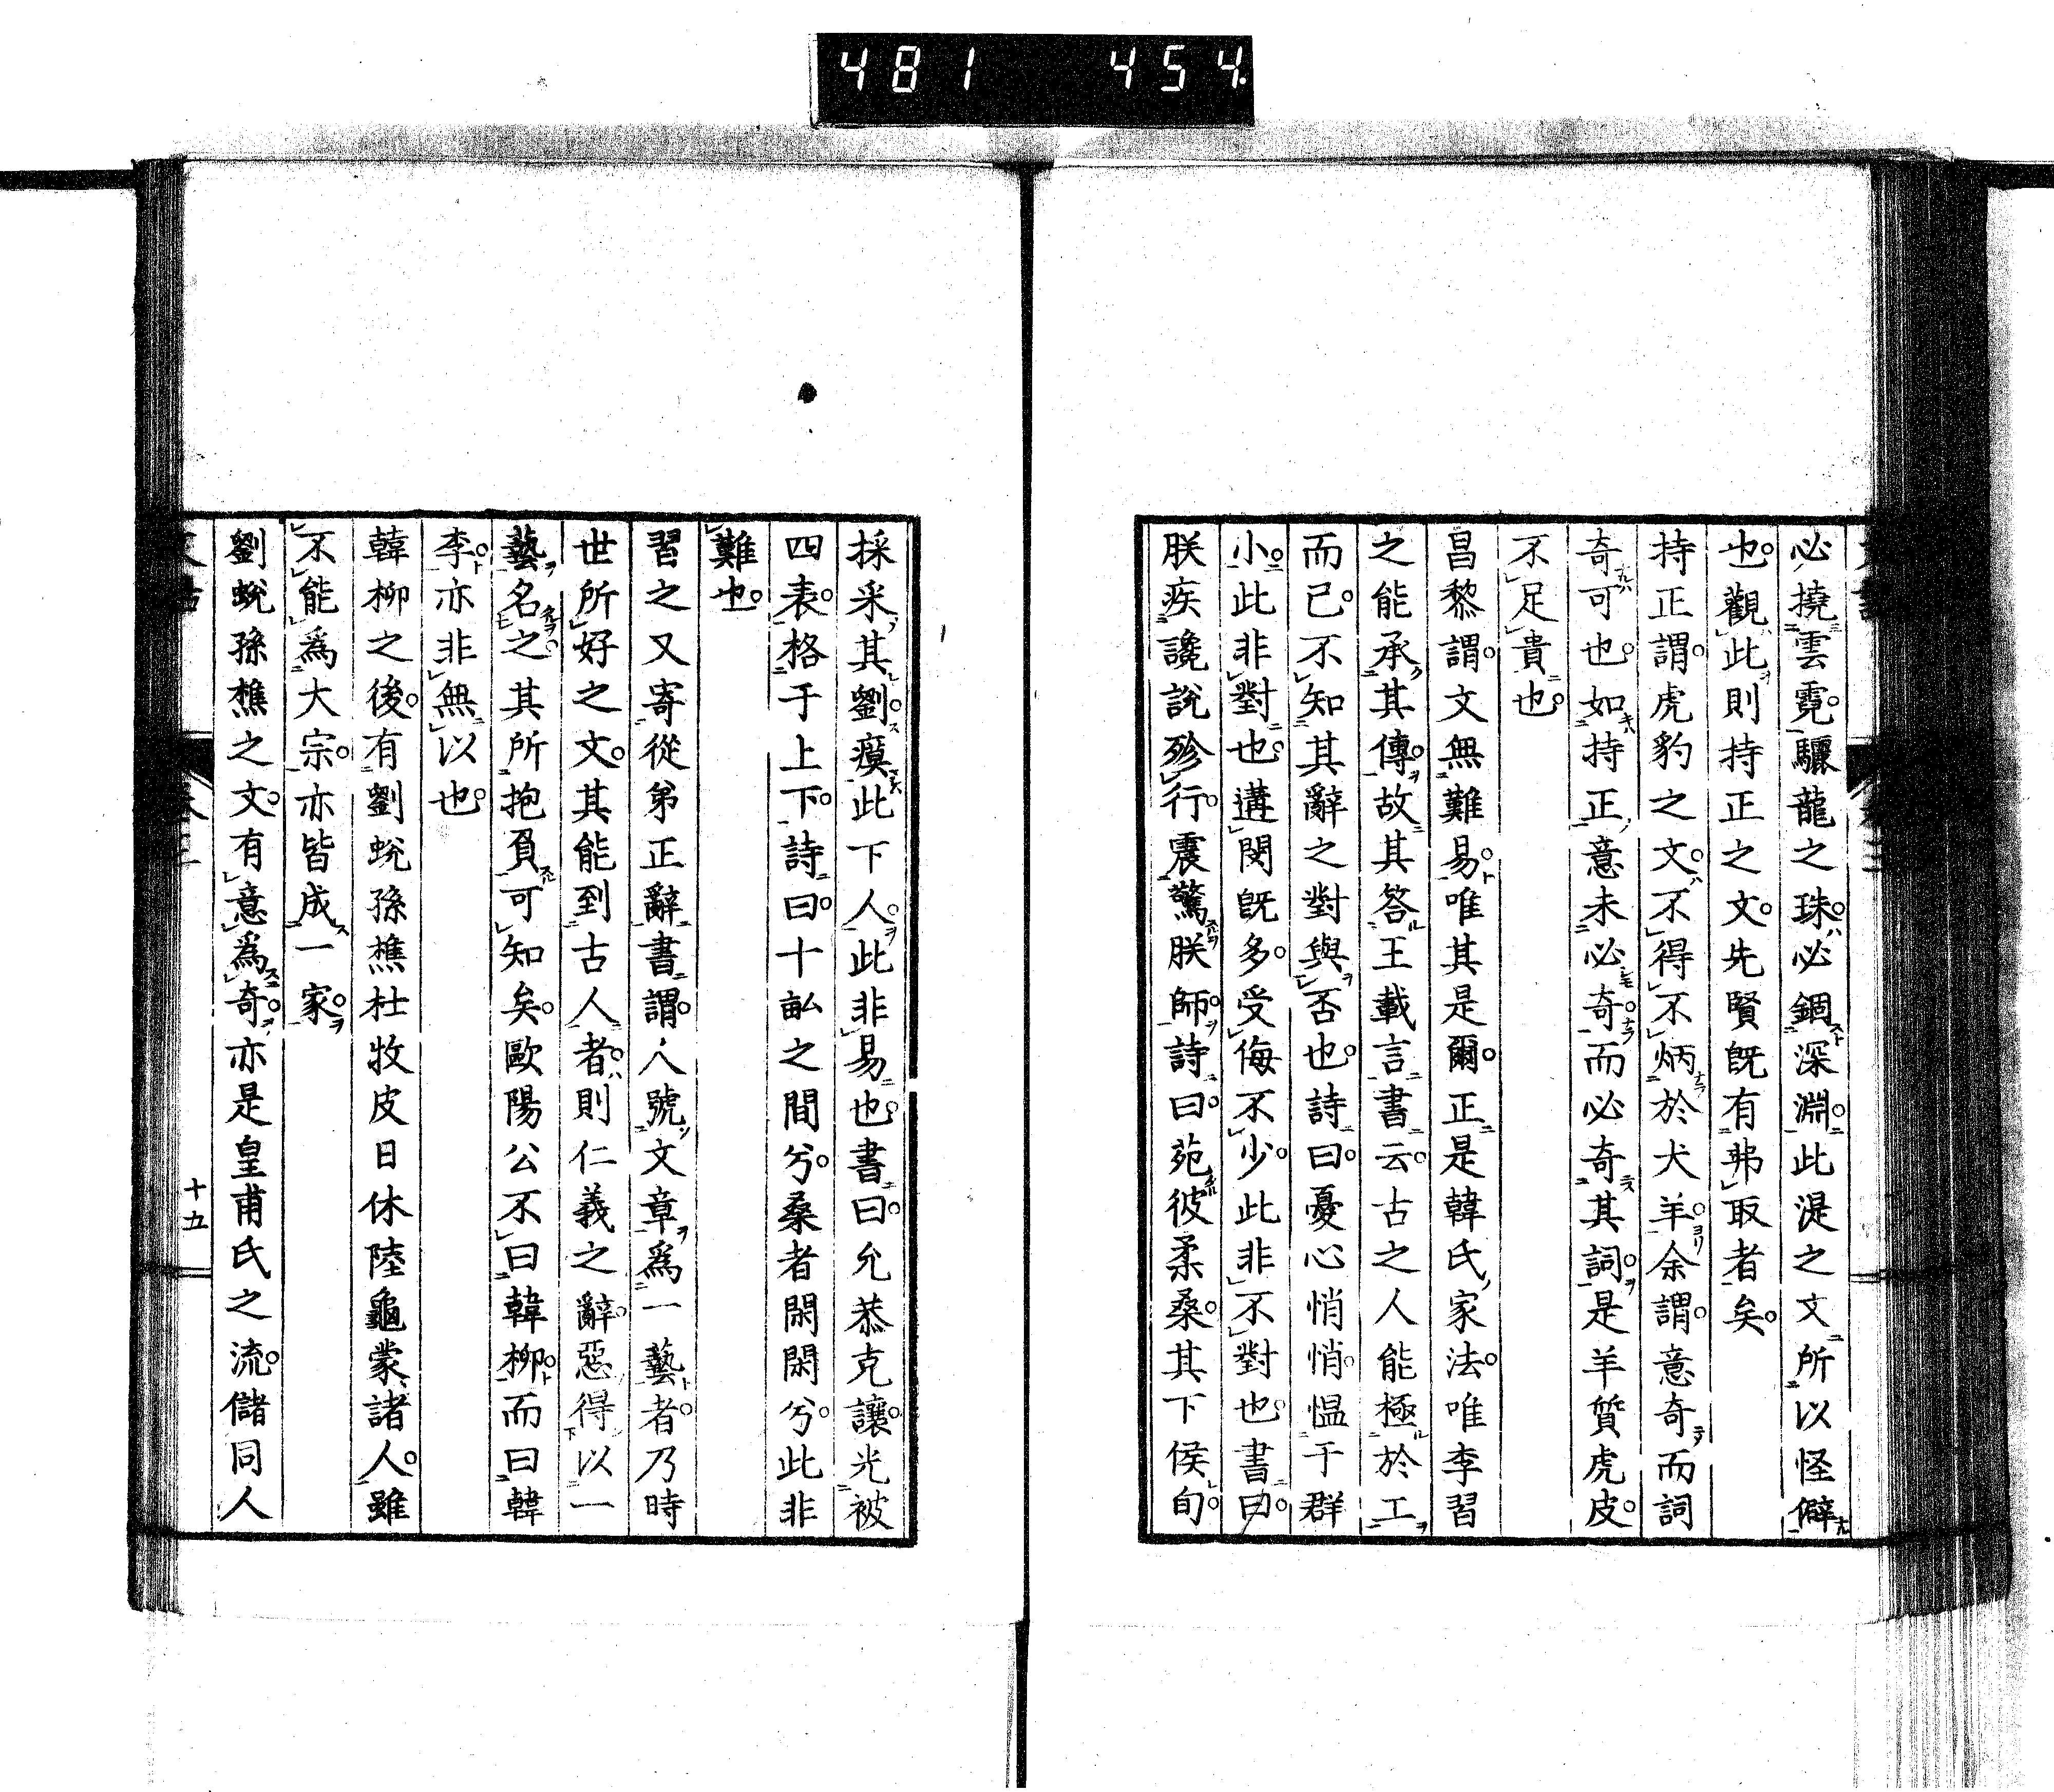 481 454
必撓雲霓驪龍之珠必錮深淵此湜之文所以怪僻
也觀此則持正之文先賢既有弗取者矣
持正謂虎豹之文不得不炳於犬羊余謂意奇而詞
奇可也如持正意未必奇而必奇其詞是羊質虎皮
不足貴也
昌黎謂文無難易唯其是爾正是韓氏家法唯李習
之能承其傳故其答王載言書云古之人能極於工
而已不知其辭之對與否也詩曰憂心悄悄慍于群
小此非對也遘閔既多受侮不少此非不對也書曰
朕疾讒說殄行震驚朕師詩曰菀彼柔桑其下侯旬
採采其劉瘼此下人此非易也書曰允恭克讓光被
四表格于上下詩曰十畝之間兮桑者閑閑兮此非
難也
習之又寄從弟正辭書謂人號文章為一藝者乃時
世所好之文其能到古人者則仁義之辭惡得以一
藝名之其所抱負可知矣歐陽公不曰韓柳而曰韓
李亦非無以也
韓柳之後有劉蛻孫樵杜牧皮日休陸龜蒙諸人雖
不能為大宗亦皆成一家
劉蛻孫樵之文有意為奇亦是皇甫氏之流儲同人
十五